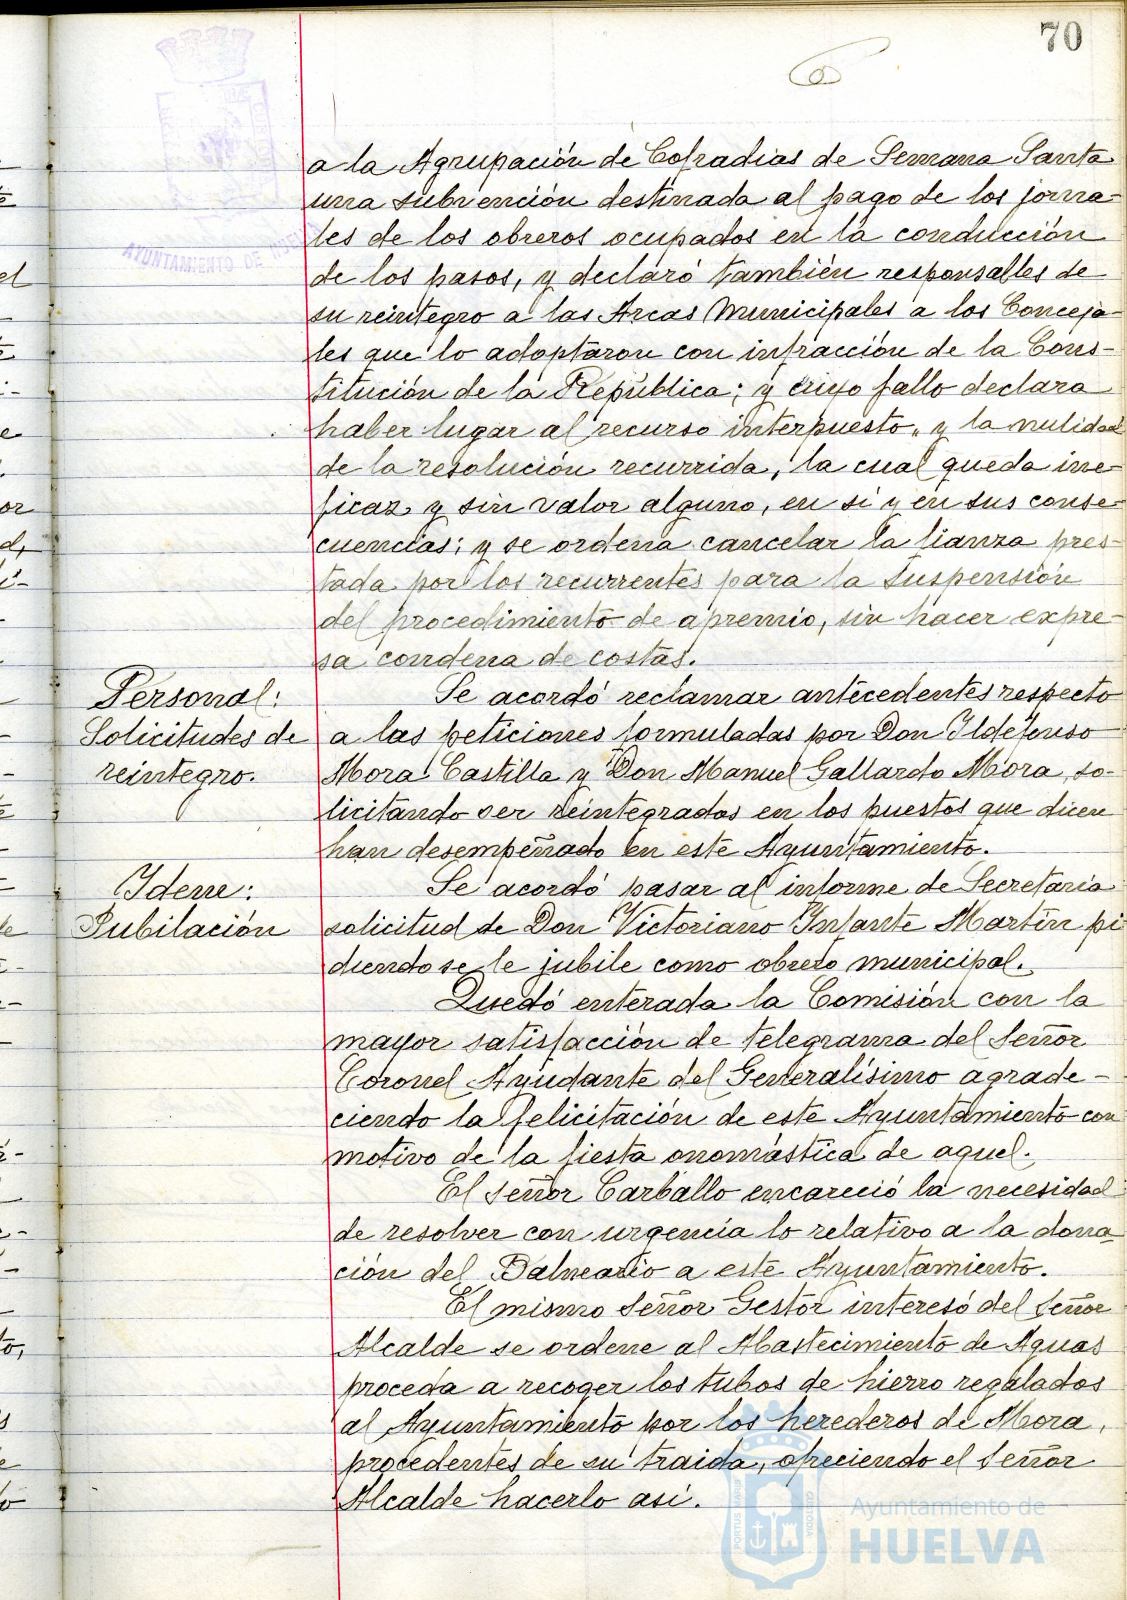 70
a la Agrupación de Cofradias de Semana Santa
una subvención destinada al pago de los jorna-
les de los obreros ocupados en la conducción
de los pasos, y declaró también responsables de
su reintegro a las Arcas Municipales a los Conceja-
les que lo adoptaron con infracción de la Cons-
titución de la República; y cuyo fallo declara
haber lugar al recurso interpuesto, y la nulidad
de la resolución recurrida, la cual queda ine-
ficaz y sin valor alguno, en si y en sus conse-
cuencias; y se ordena cancelar la fianza pres-
tada por los recurrentes para la suspensión
del procedimiento de apremio, sin hacer expre-
sa condena de costas.
Personal:
Solicitudes de
reintegro.
Se acordó reclamar antecedentes respecto
a las peticiones formuladas por Don Ildefonso
Mora Castilla y Don Manuel Gallardo Mora, so-
licitando ser reintegrados en los puestos que dicen
han desempeñado en este Ayuntamiento.
Idem:
Jubilación
Se acordó pasar al informe de Secretaria
solicitud de Don Victoriano Infante Martín pi
diendo se le jubile como obrero municipal.
Quedó enterada la Comisión con la
mayor satisfacción de telegrama del Señor
Coronel Ayudante del Generalísimo agrade-
ciendo la felicitación de este Ayuntamiento con
motivo de la fiesta onomástica de aquel.
El señor Carballo encareció la necesidad
de resolver con urgencia lo relativo a la dona-
ción del Balneario a este Ayuntamiento.
El mismo Señor Gestor interesó del Señor
Alcalde se ordene al Abastecimiento de Aguas
proceda a recoger los tubos de hierro regalados
al Ayuntamiento por los herederos de Mora,
procedentes de su traida, ofreciendo el Señor
Alcalde hacerlo asi.
AYUNTAMIENTO DE
Ayuntamiento de
HUELVA
PORTUS MARIS
CUSTODIA